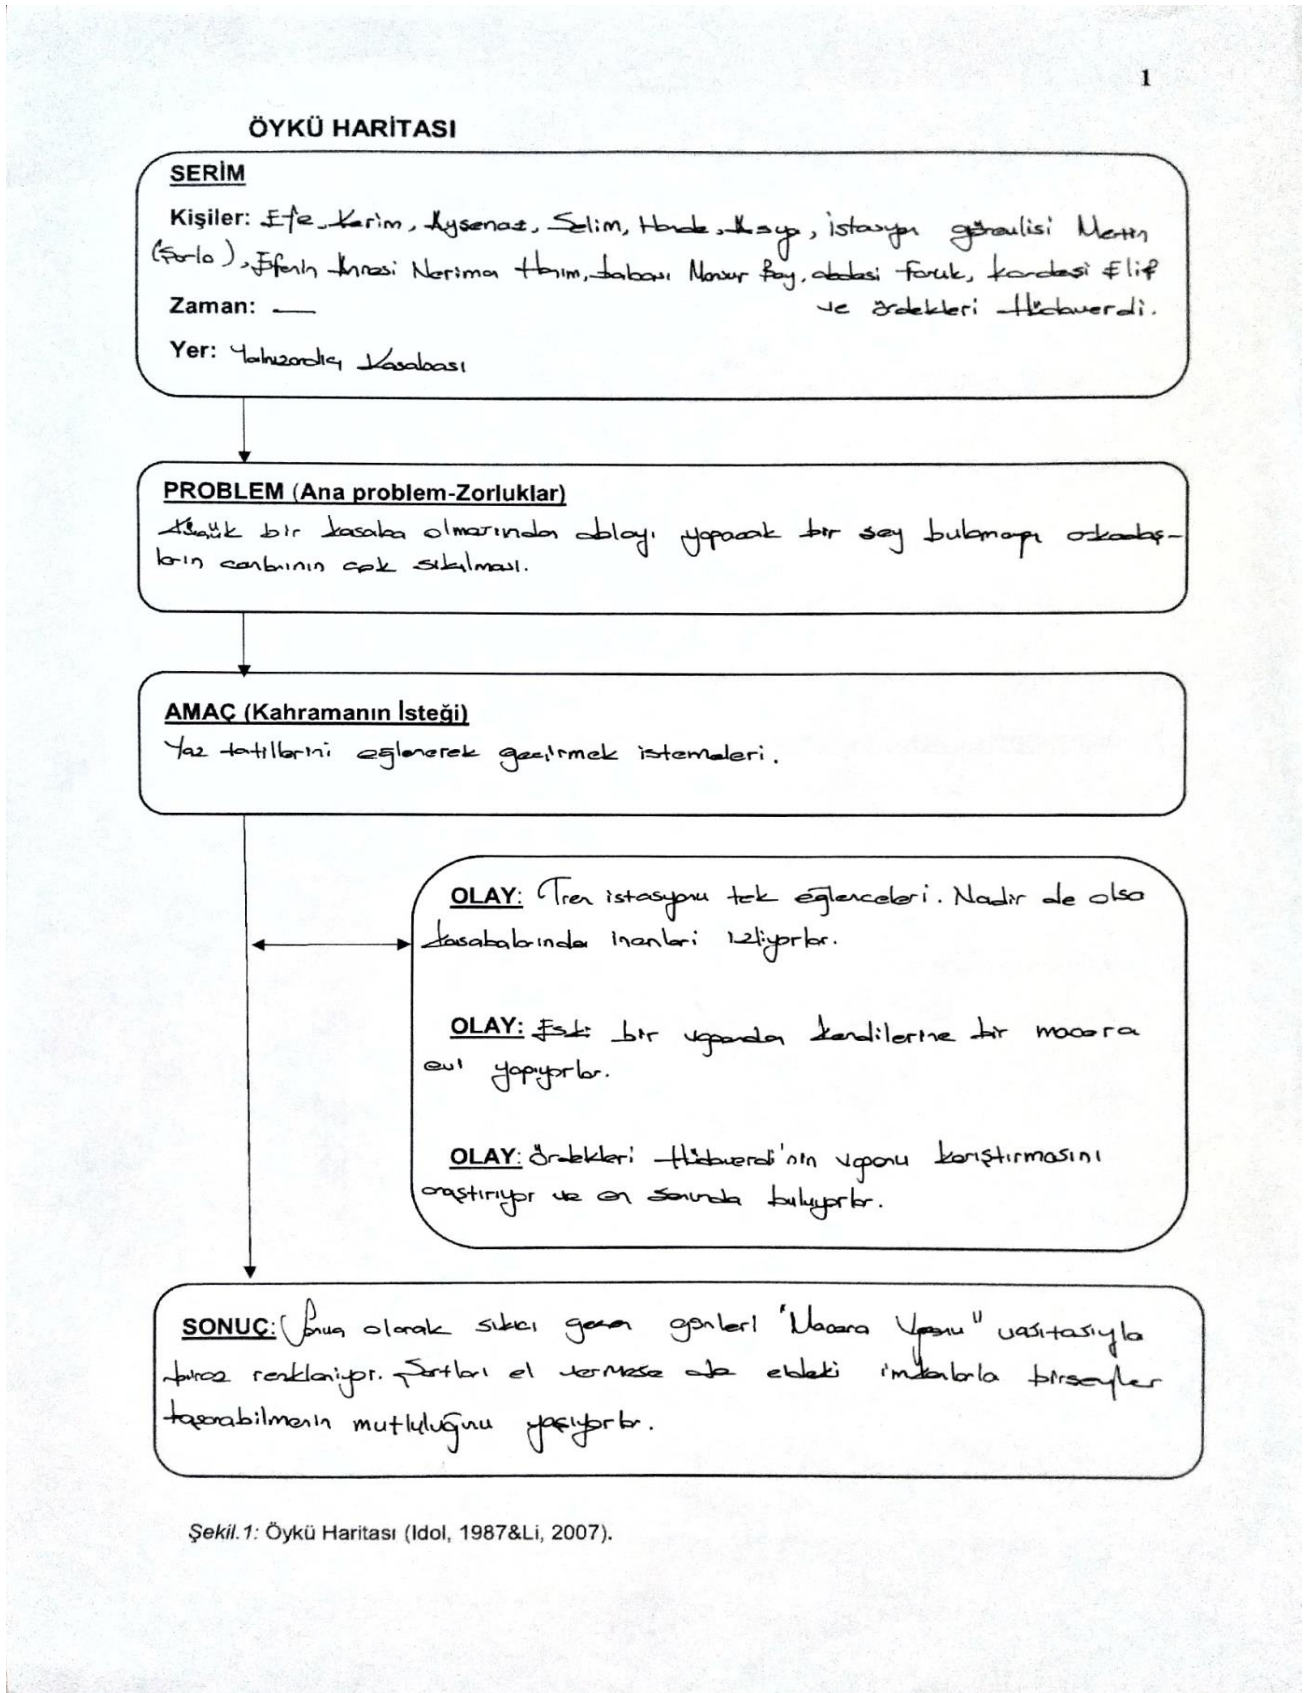 1
ÖYKÜ HARİTASI
SERİM
Kişiler: Efe, Kerim, Ayşenaz, Selim, Hande, Asya, istasyon görevlisi Metin
Efenin Annesi Neriman Hanım, babası Mansur Bey, ablası Faruk, kardeşi Elif
ve ördekleri Hüdaverdi.
Zaman: —
Yer: Yalnızardıç Kasabası
PROBLEM (Ana problem-Zorluklar)
Küçük bir kasaba olmasından dolayı yapacak bir şey bulamayan arkadaş-
ların canlarının çok sıkılması.
AMAÇ (Kahramanın İsteği)
Yaz tatillerini eğlenerek geçirmek istemeleri.
OLAY: Tren istasyonu tek eğlenceleri. Nadir de olsa
kasabalarında inenleri izliyorlar.
OLAY: Eski bir vagondan kendilerine bir macera
evi yapıyorlar.
OLAY: Ördekleri Hüdaverdi'nin vagonu karıştırmasını
araştırıyor ve en sonunda buluyorlar.
SONUÇ: Sonuç olarak sıkıcı geçen günleri "Macera Vagonu" vasıtasıyla
biraz renkleniyor. Şartları el vermese de eldeki imkanlarla birşeyler
başarabilmenin mutluluğunu yaşıyorlar.
Şekil.1: Öykü Haritası (Idol, 1987&Li, 2007).